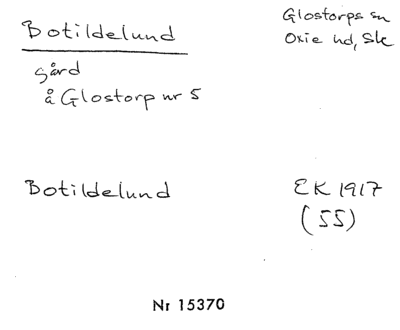 Botildelund
Glostorps sn
Oxie hd, Sk
gård
å Glostorp nr 5
Botildelund
EK 1917
(55)
Nr 15370